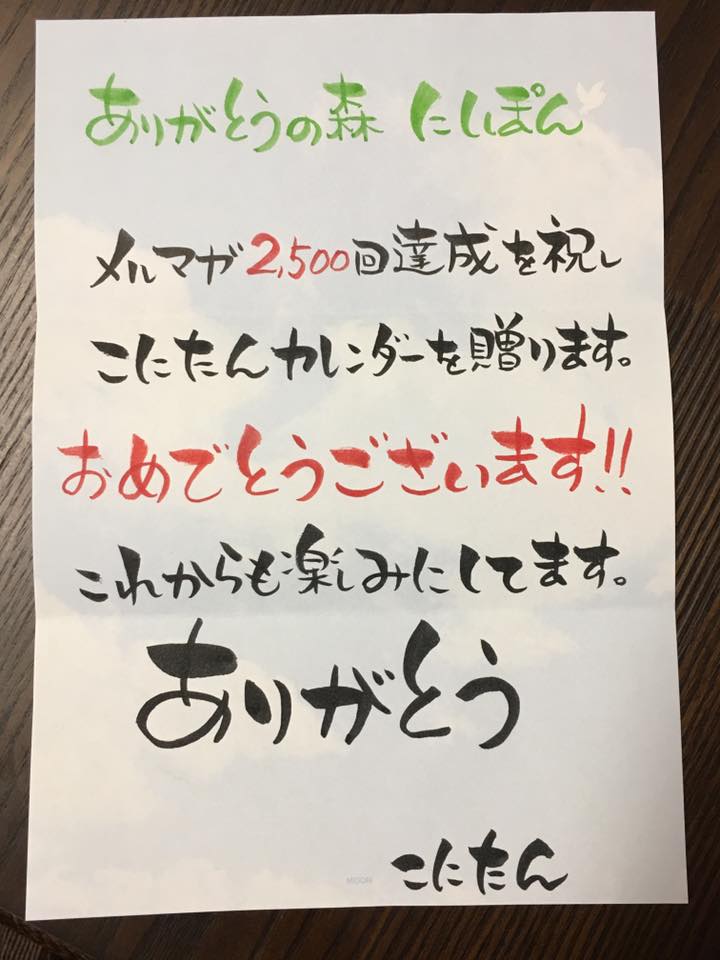 ありがとうの森 にしぽん
メルマガ2,500回達成を祝し
こにたんカレンダーを贈ります。
おめでとうございます!!
これからも楽しみにしてます。
ありがとう
こにたん
MIDORI